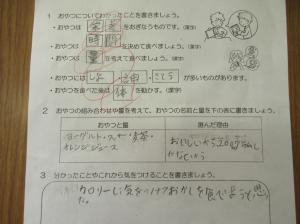 1 おやつについてわかったことを書きましょう。
・おやつは 栄養 をおぎなうものです。(漢字)
・おやつは 時間 を決めて食べましょう。(漢字)
・おやつは 量 を考えて食べましょう。(漢字)
・おやつには しお ・油・さとう が多いものがあります。
・おやつを食べた後は 体 を動かす。(漢字)
2 おやつの組み合わせや量を考えて、おやつの名前と量を下の表に書きましょう。
おやつと量 選んだ理由
ヨーグルト
オレンジジュース
おいしいから
3 分かったことやこれから気をつけることを書きましょう。
カロリーに気をつけておかしを食べようと思っ
た。